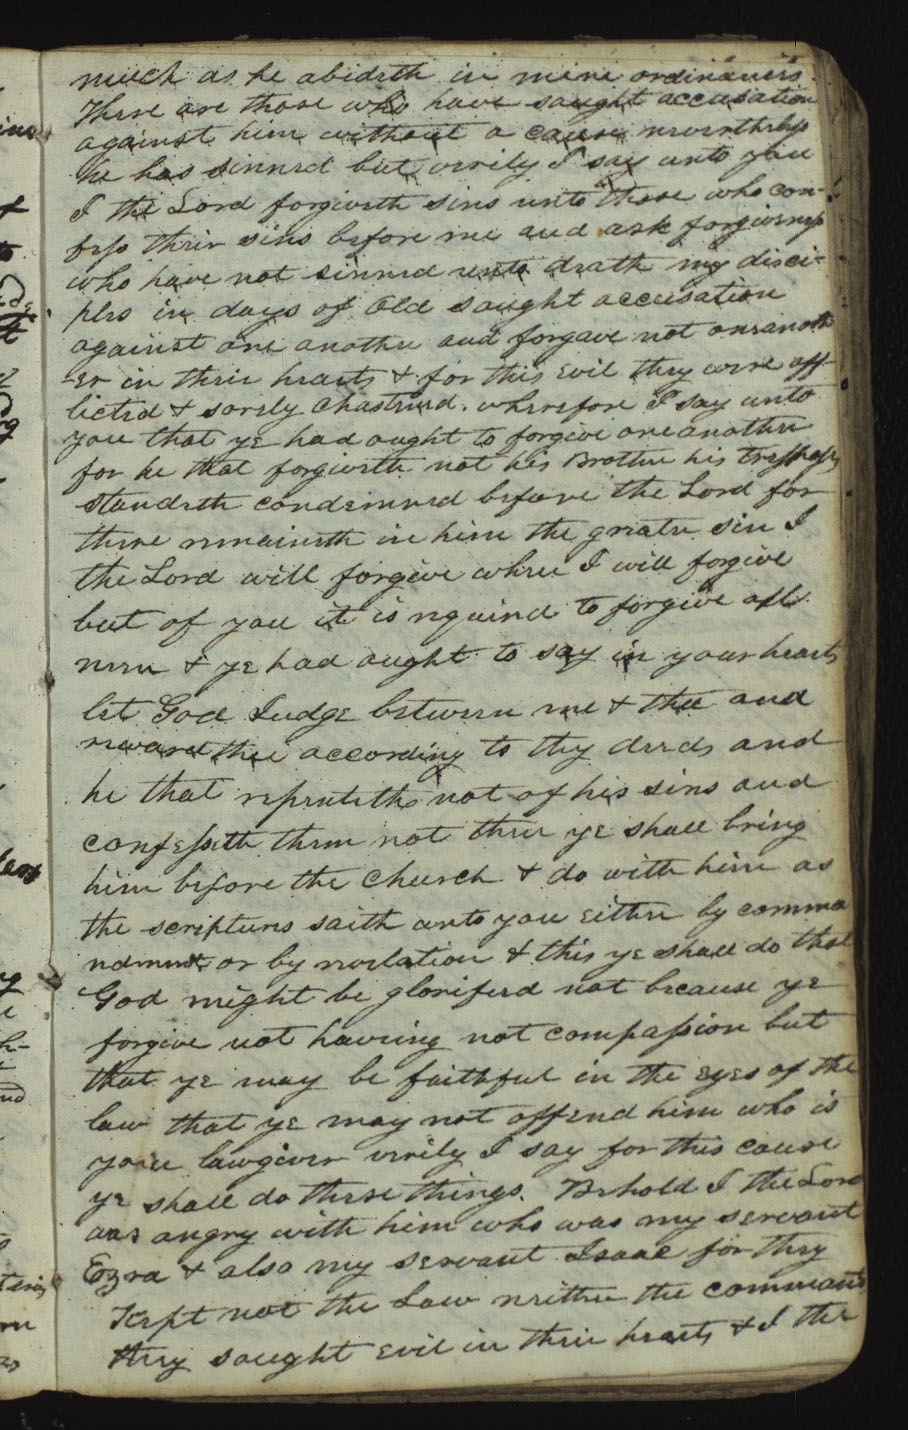 much as he abideth in mine ordinances.
There are those who have saught accusation
against him without a cause nevertheless
he has sinned but verily I say unto you
I the Lord forgiveth sins unto those who con-
fess their sins before me and ask forgiveness
who have not sinned unto death my disci-
ples in days of old saught accusation
against one another and forgave not oneanoth
-er in their hearts & for this evil they were aff
licted & sorely Chastened. wherefore I say unto
you that ye had ought to forgive one another
for he that forgiveth not his Brother his trespases
standeth condemned before the Lord for
there remaineth in him the greater sin I
the Lord will forgive whom I will forgive
but of you it is required to forgive all
men & ye had ought to say in your hearts
let God Judge between me & thee and
reward thee according to thy deeds and
he that repenteth not of his sins and
confesseth them not then ye shall bring
him before the Church & do with him as
the scriptures saith unto you either by comma
ndment or by revelation & this ye shall do that
God might be glorified not because ye
forgive not having not compassion but
that ye may be faithful in the eyes of the
law that ye may not offend him who is
your lawgiver verily I say for this cause
ye shall do these things. Behold I the Lord
was angry with him who was my servant
Ezra & also my servant Isaac for they
Kept not the Law neither the command
they saught evil in their hearts & I the